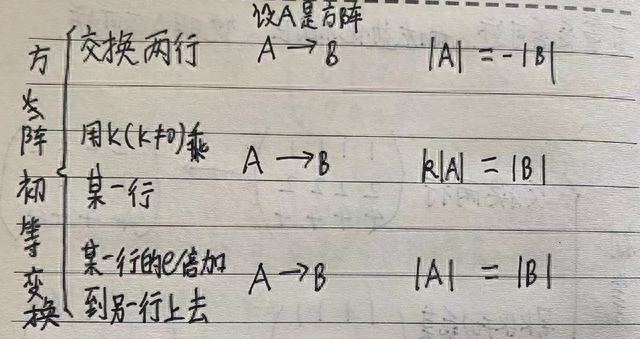 设A是方阵
方阵初等变换
交换两行 A→B |A| = -|B|
用k(k≠0)乘
某一行 A→B k|A| = |B|
某一行的e倍加
到另一行上去 A→B |A| = |B|